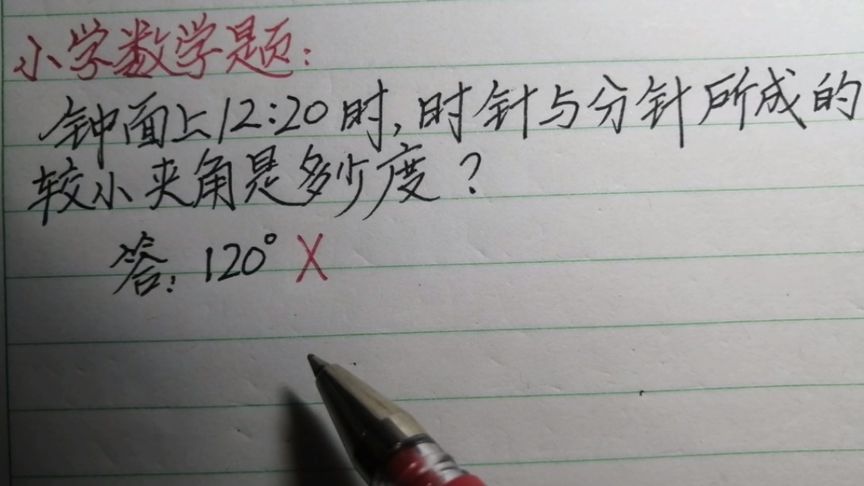 小学数学题：
钟面上12:20时,时针与分针所成的
较小夹角是多少度？
答：120° X